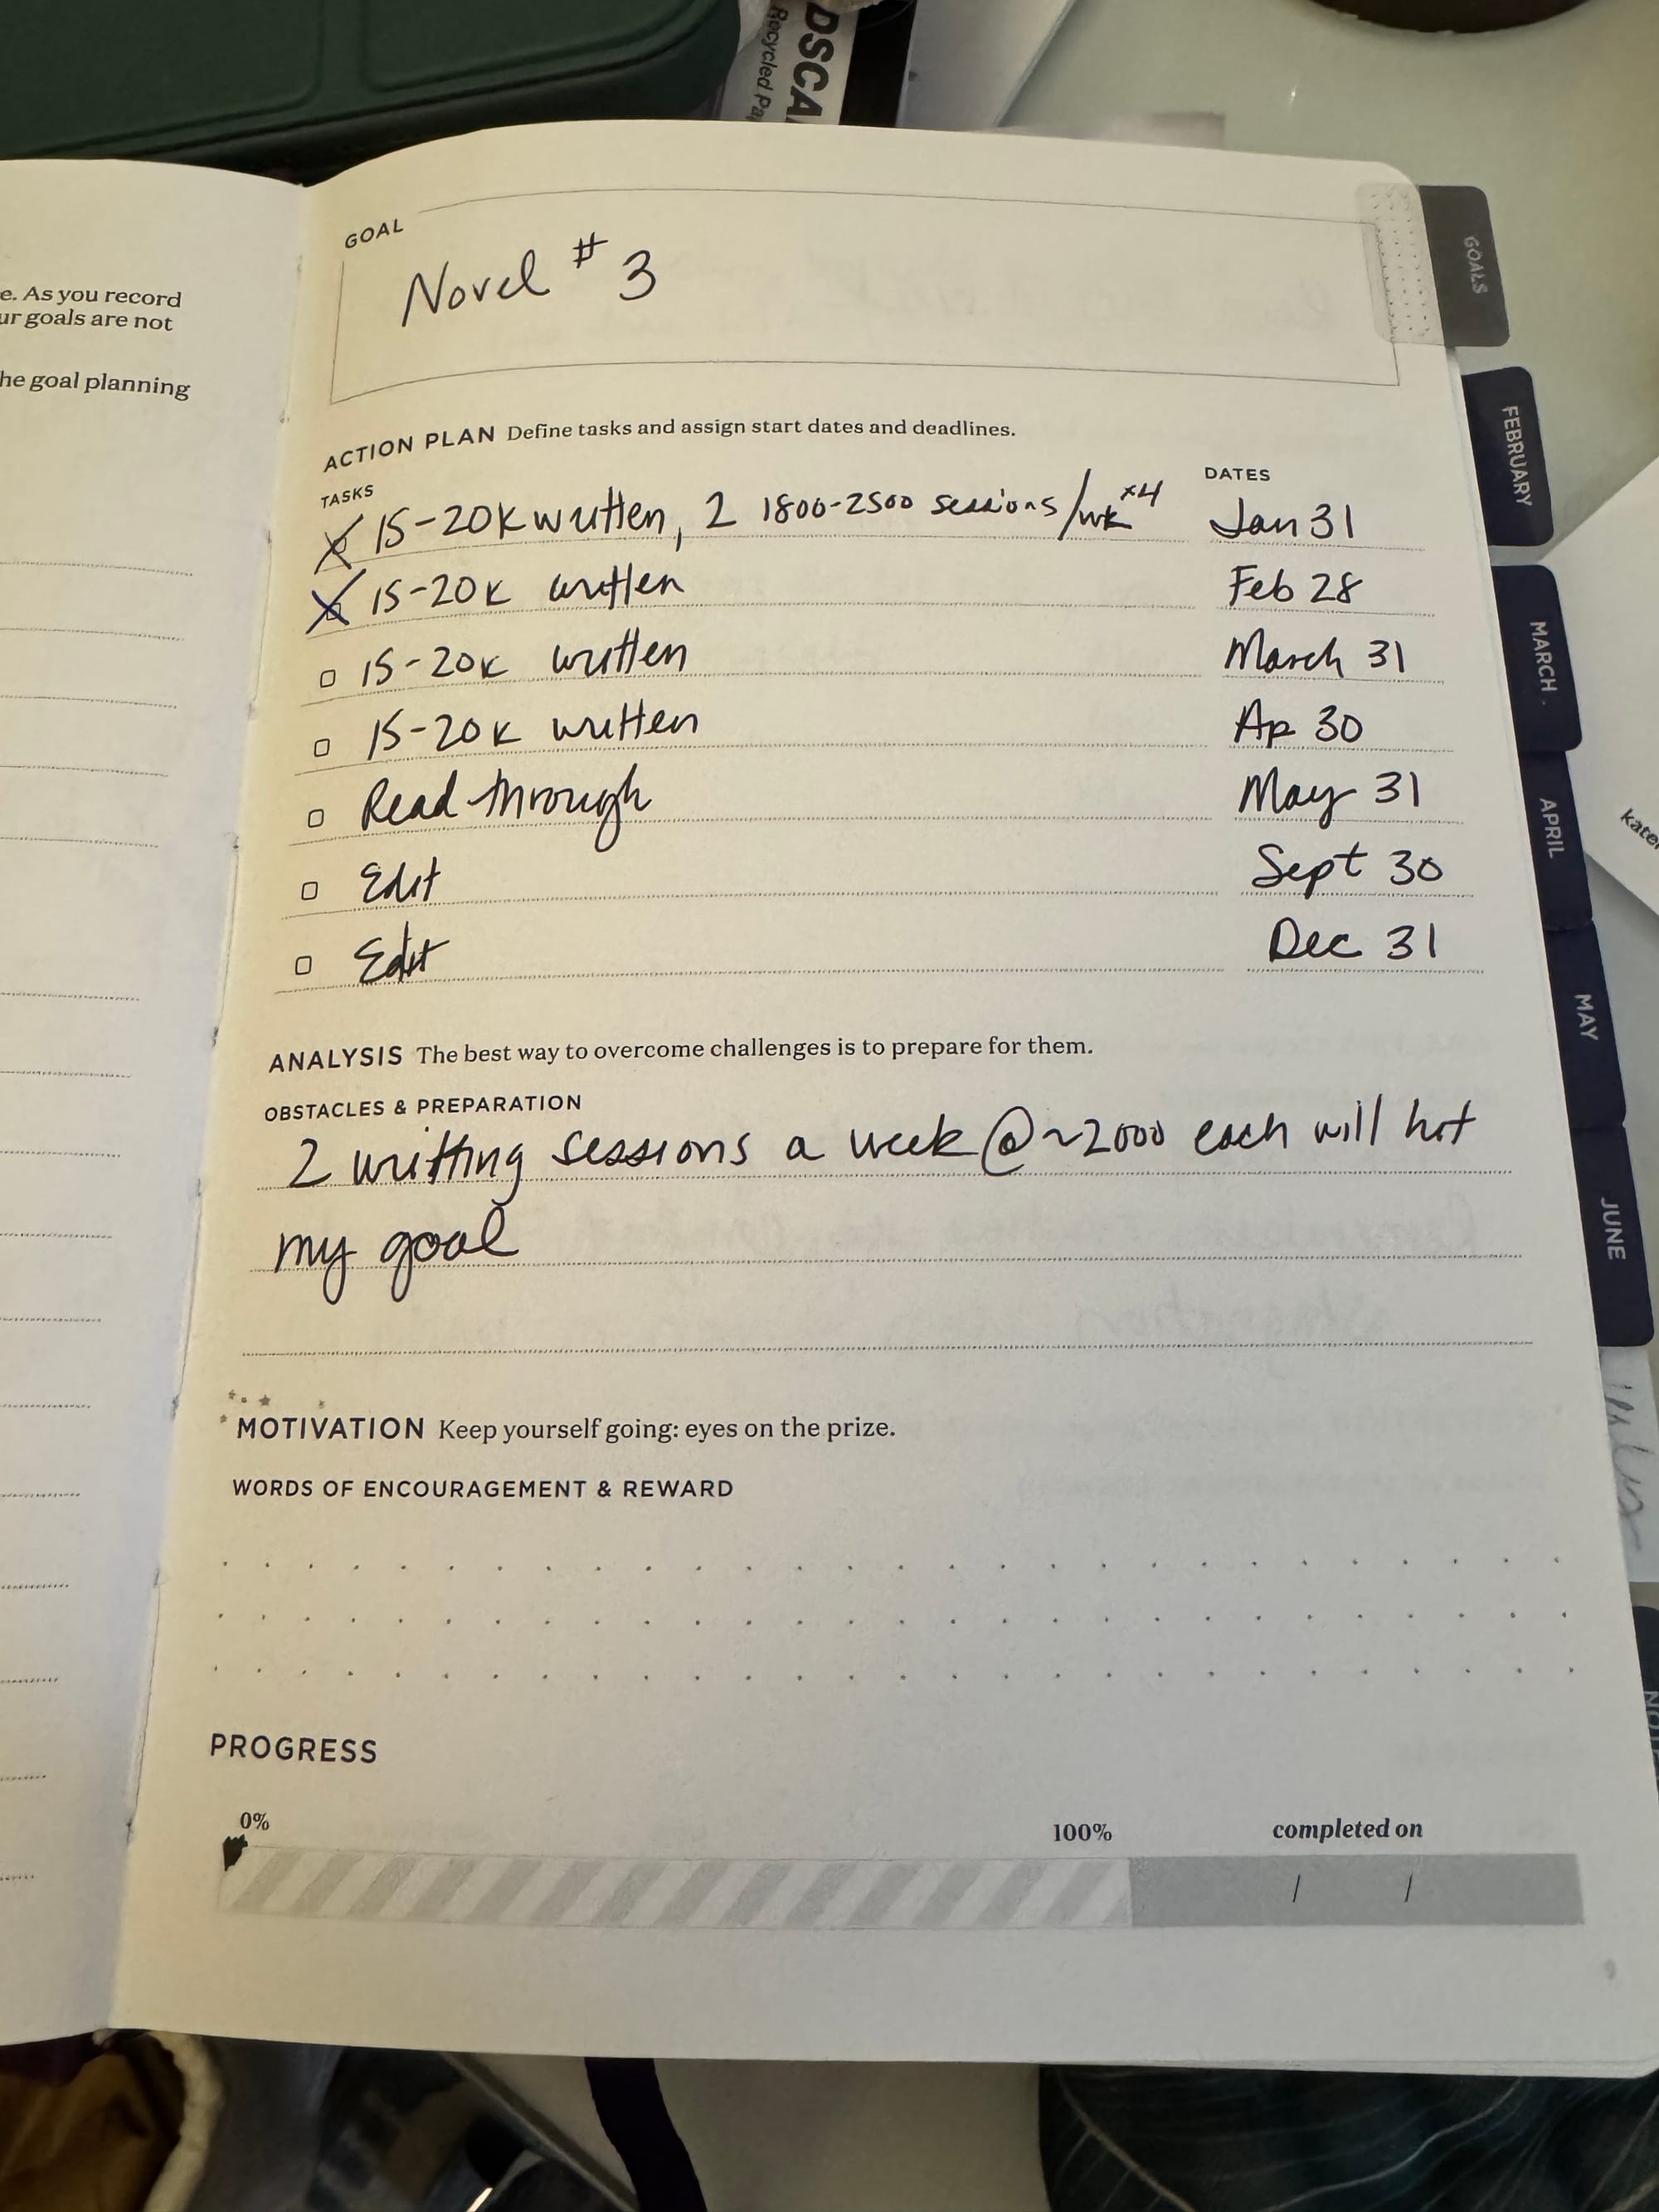 DSCA
Recycled Pa
e. As you record
ur goals are not
he goal planning
GOAL
Novel # 3
ACTION PLAN Define tasks and assign start dates and deadlines.
TASKS
DATES
15-20K written, 2 1800-2500 sessions/wk x4 Jan 31
15-20K written Feb 28
15-20K written March 31
15-20K written Ap 30
Read through May 31
Edit Sept 30
Edit Dec 31
ANALYSIS The best way to overcome challenges is to prepare for them.
OBSTACLES & PREPARATION
2 writting sessions a week @ ~2000 each will hit
my goal
MOTIVATION Keep yourself going: eyes on the prize.
WORDS OF ENCOURAGEMENT & REWARD
PROGRESS
0% 100% completed on
/ /
GOALS
FEBRUARY
MARCH
APRIL
MAY
JUNE
kate